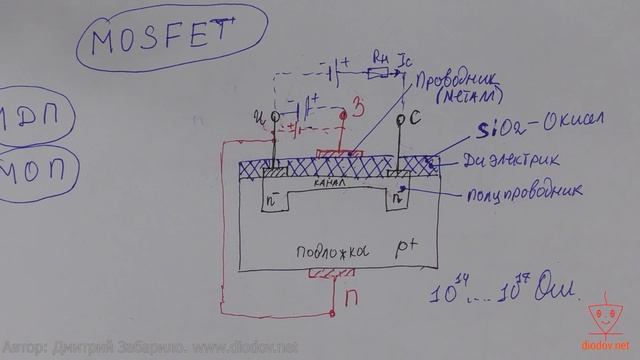 MOSFET
МДП
МОП
Rн Ic
и З С
Проводник
(металл)
SiO2 - Окисел
Диэлектрик
полупроводник
КАНАЛ
n⁻ n⁻
подложка p+
П
10¹⁴...10¹⁷ Ом.
Автор: Дмитрий Забарило. www.diodov.net
diodov.net